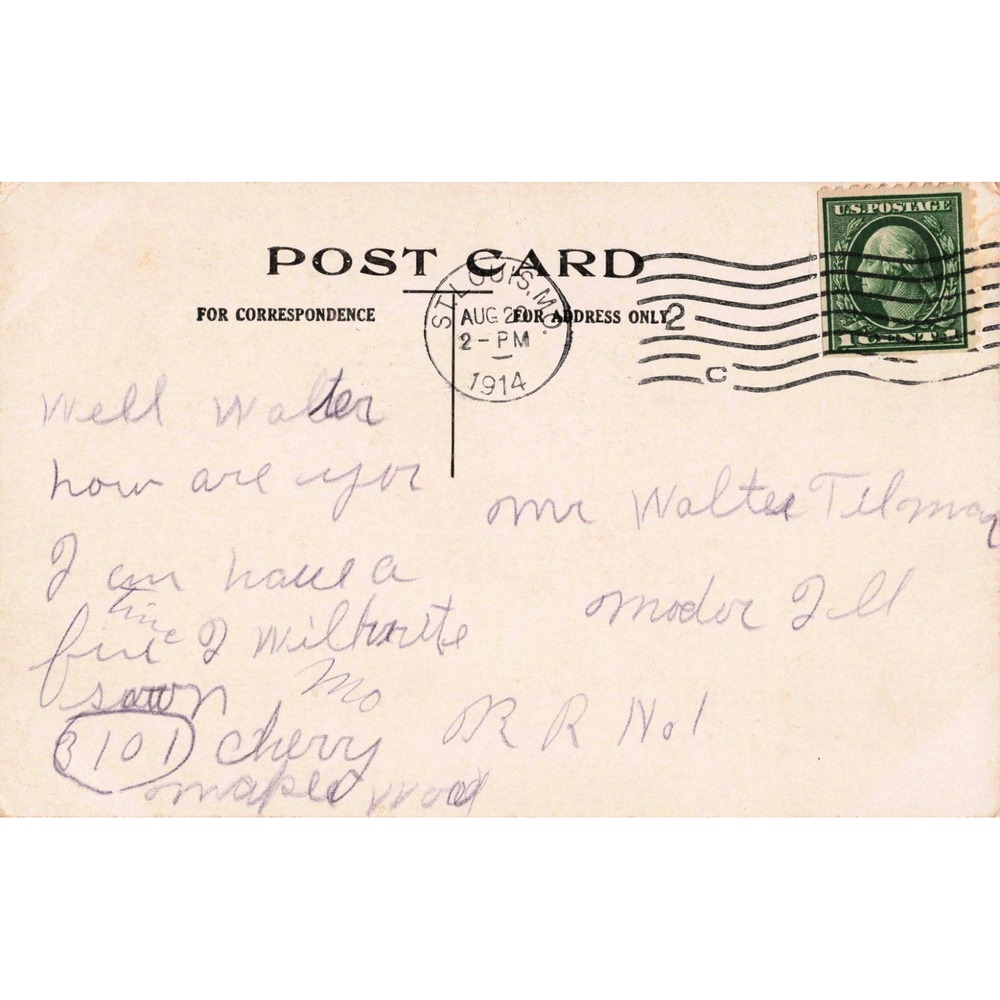 POST CARD
FOR CORRESPONDENCE
FOR ADDRESS ONLY
ST. LOUIS, MO.
AUG 2
2-PM
1914
2
C
U.S. POSTAGE
1
Well Walter
how are you
I am have a
fine time I will write
soon Mo
3101 cherry
maple wood
Mr Walter Tilman
Modoc Ill
R R No 1